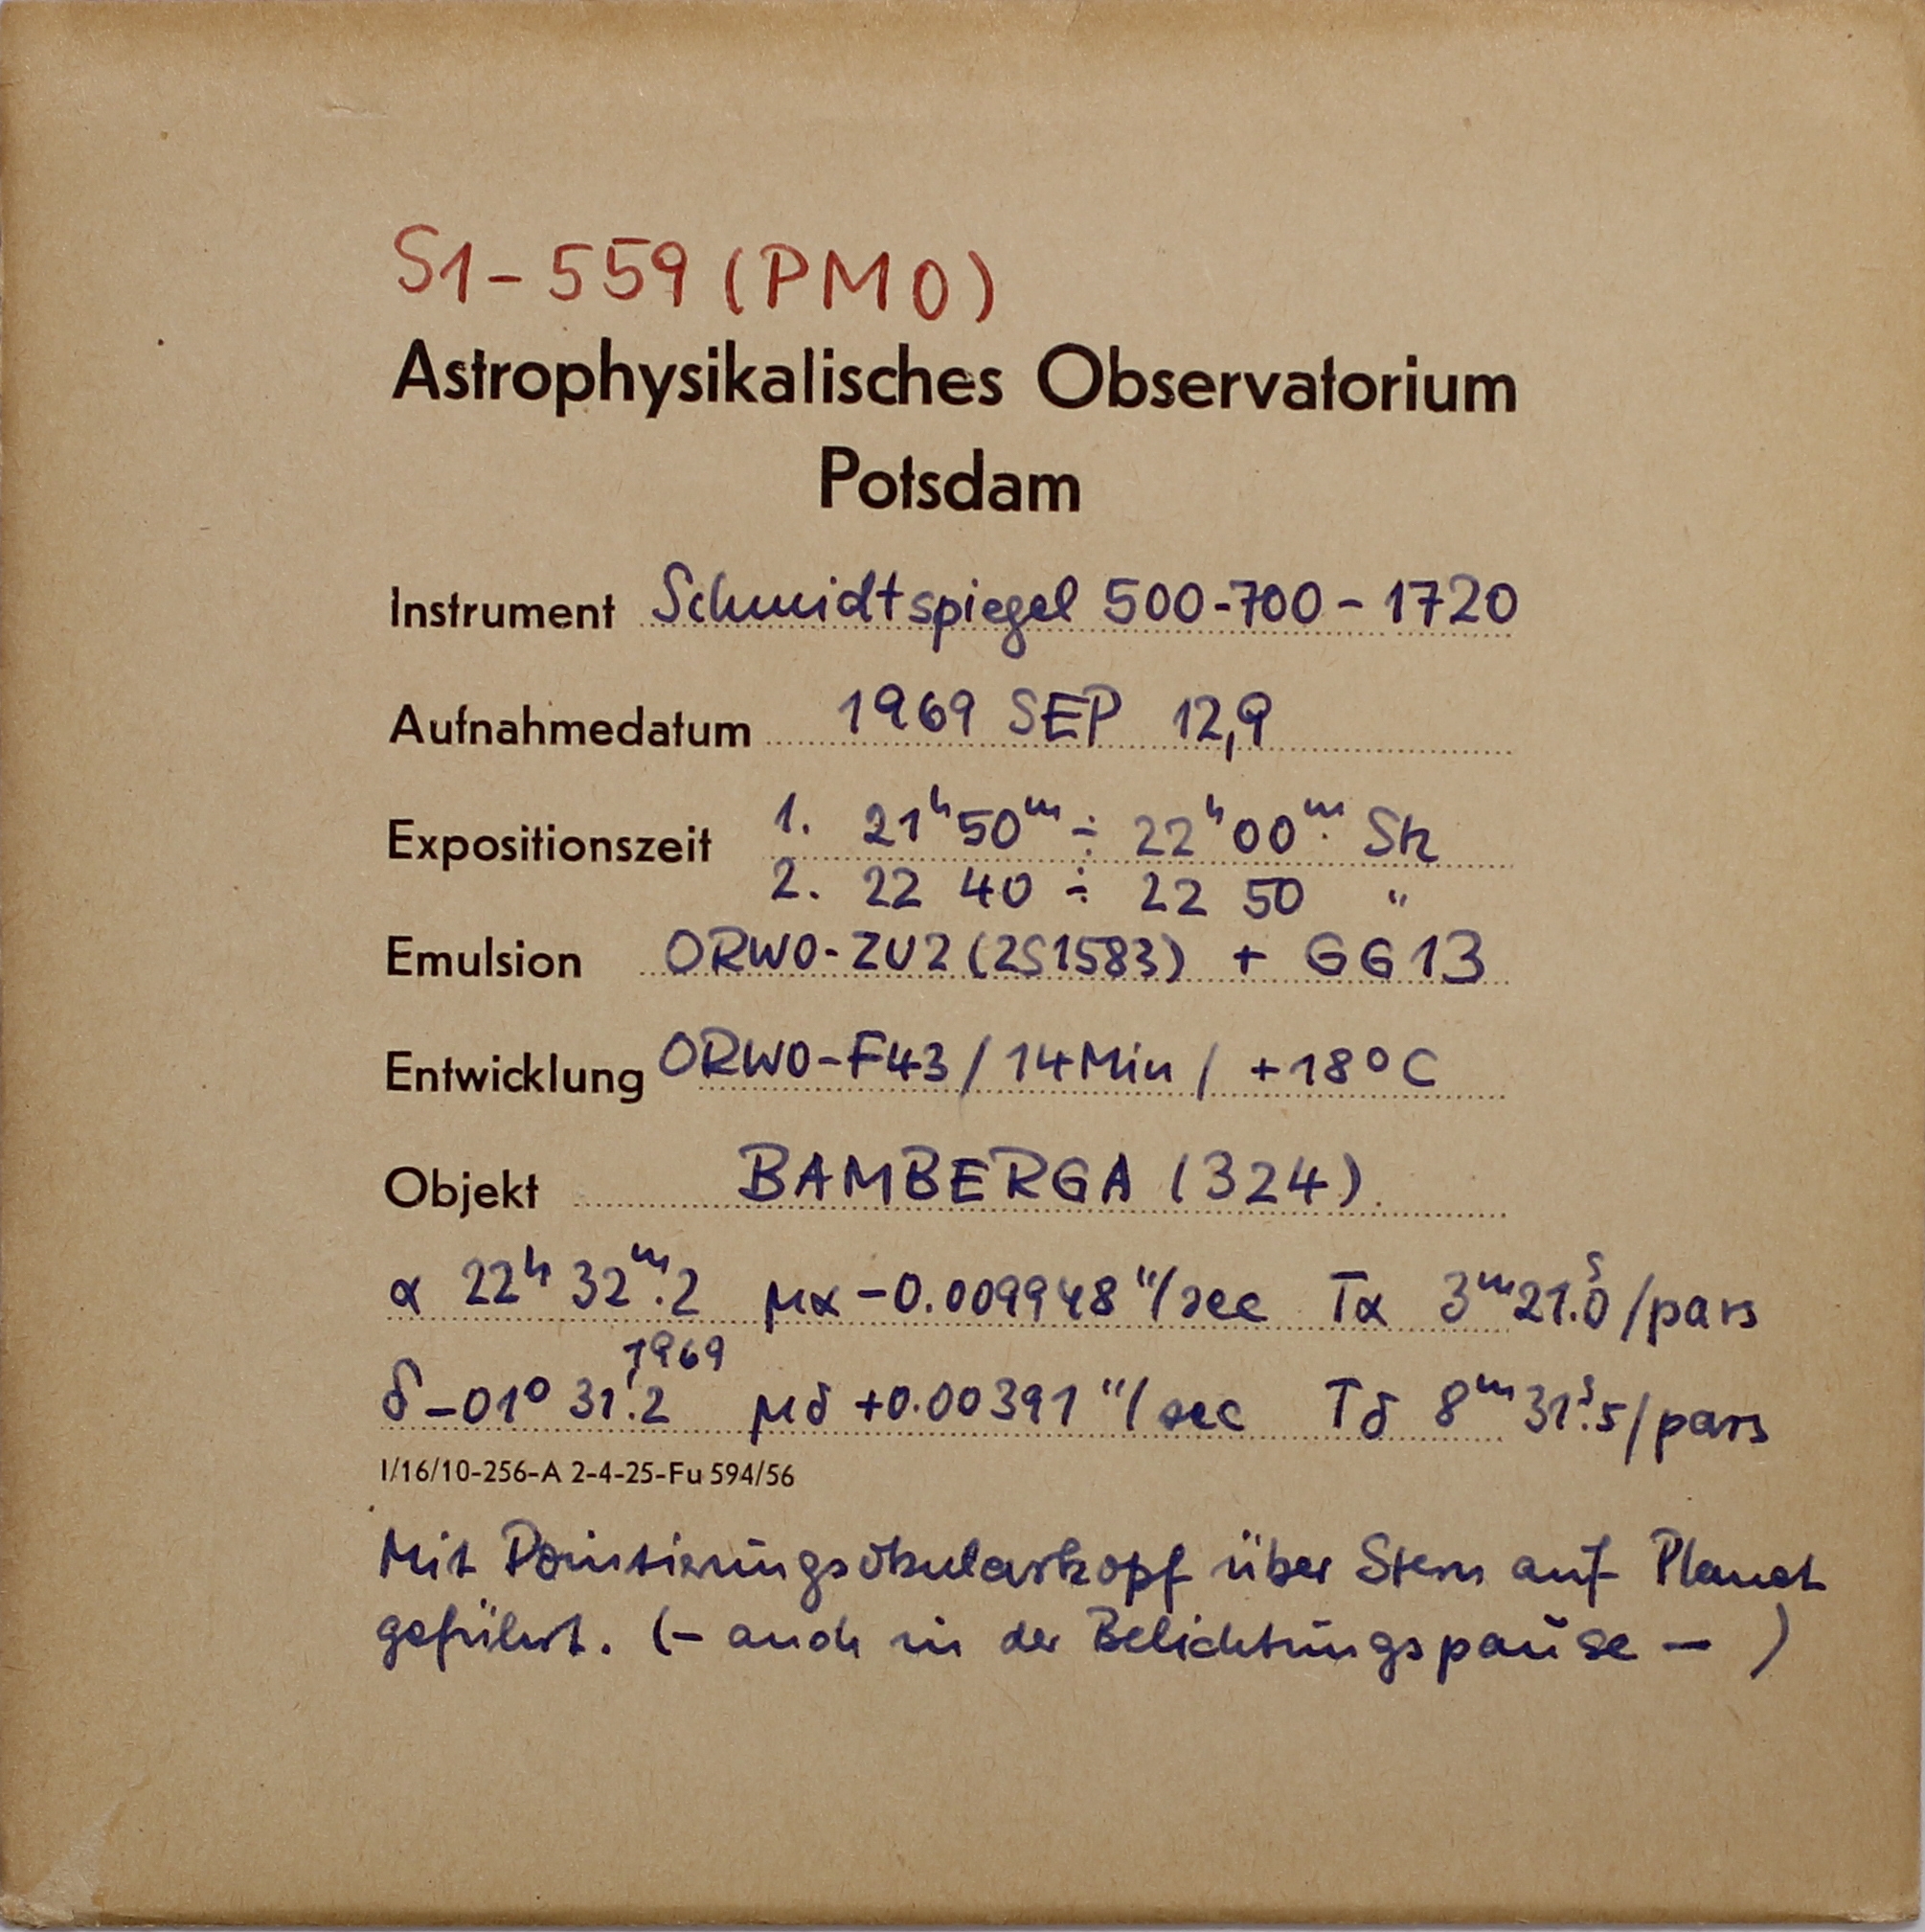 S1-559 (PMO)
Astrophysikalisches Observatorium
Potsdam
Instrument Schmidtspiegel 500-700-1720
Aufnahmedatum 1969 SEP 12,9
Expositionszeit 1. 21ʰ50ᵐ ÷ 22ʰ00ᵐ Sti
2. 22 40 ÷ 22 50 "
Emulsion ORWO-ZU2 (2S1583) + GG13
Entwicklung ORWO-F43 / 14Min / +18°C
Objekt BAMBERGA (324)
α 22ʰ 32ᵐ.2 μα -0.009948 "/sec Tα 3ᵐ21.ˢ0/pars
1969
δ -01° 31'.2 μδ +0.00391 "/sec Tδ 8ᵐ31ˢ.5/pars
I/16/10-256-A 2-4-25-Fu 594/56
Mit Pointierungsokularkopf über Stern auf Planet
geführt. (- auch in der Belichtungspause - )